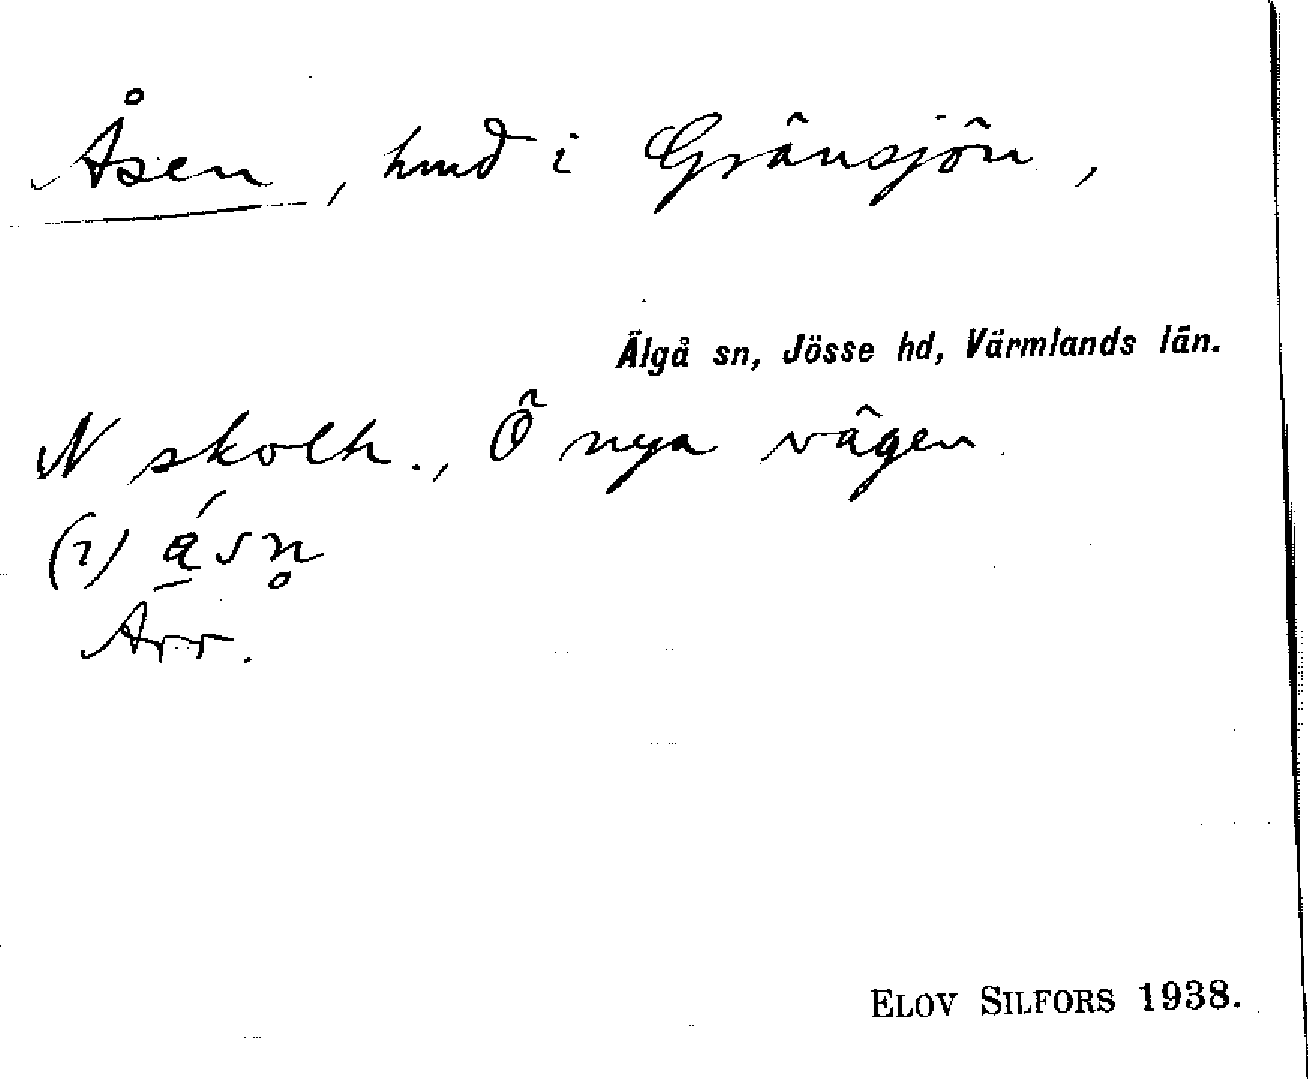 Åsen, hmd i Gränsjön,
Älgå sn, Jösse hd, Värmlands län.
N skolh., Ö nya vägen.
(1) á̱sn̥
Arr.
ELOV SILFORS 1938.